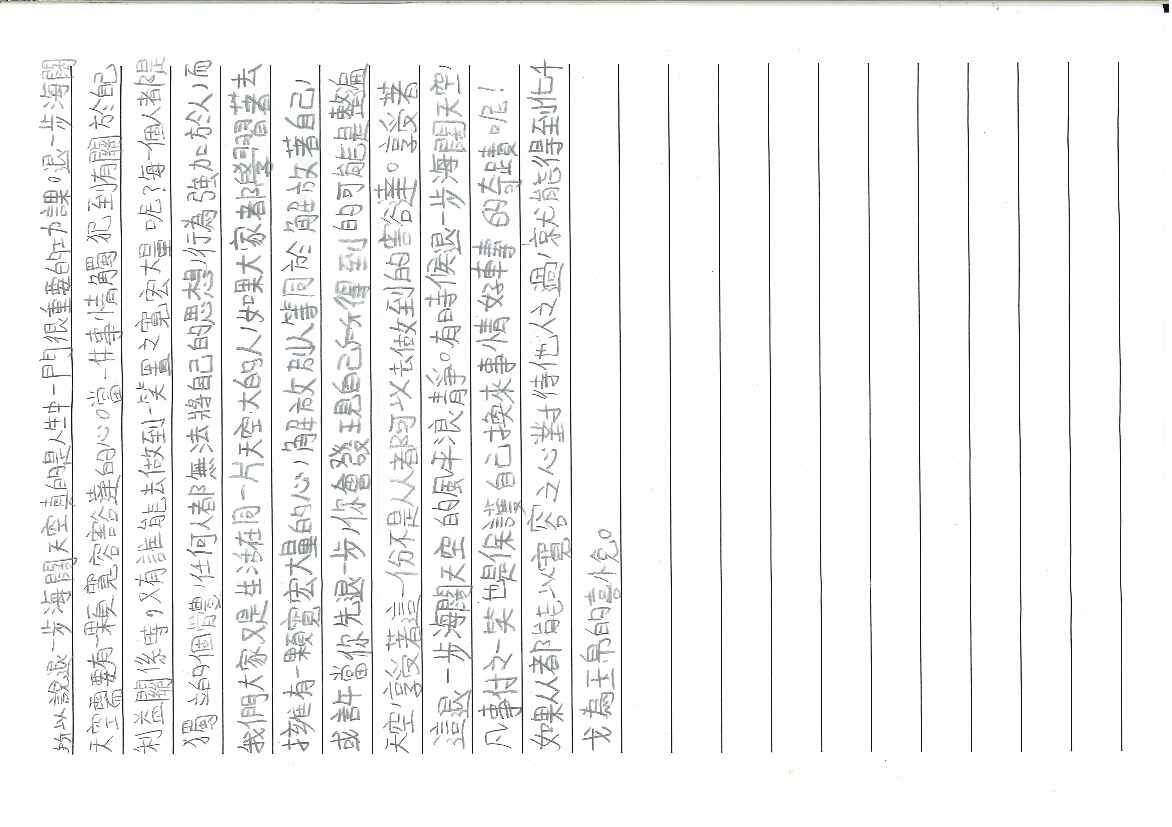 所以說退一步海闊天空真的是人生中一門很重要的主力課。退一步海闊
天空需要有一顆寬容豁達的心。當一件事情觸犯到有關於自己
利益關係時，又有誰能去做到一笑置之寬宏大量呢？每一個人都是
獨立的個體，任何人都無法將自己的思想，行為強加於人，而
我們大家又是生活在同一片天空大的人，如果大家都學習著去
擁有一顆寬宏大量的心，解放別人等同於解放著自己，
或許當你先退一步，你會發現自己所得到的可能是整遍
天空，享受著這一份不是人人都可以去做到的豁達。享受著
這退一步海闊天空的風平浪靜。有時候退一步海闊天空，
凡事付之一笑也是保護自己換來事情好轉的奇蹟呢！
如果人人都能以寬容之心對待他人之過，就能得到化干
戈為玉帛的喜悅。